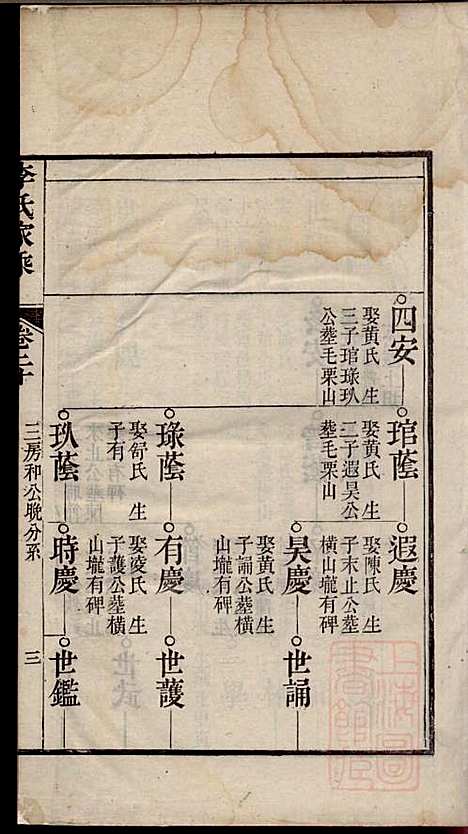 四安
娶黃氏 生
三子琯琭玖
公塟毛栗山
琯蔭
娶黃氏 生
二子遐昊公
塟毛栗山
遐慶
娶陳氏 生
子末止公塟
橫山壠有碑
昊慶
娶黃氏 生
子誦公塟橫
山壠有碑
世誦
琭蔭
娶舒氏 生
子有
有慶
娶凌氏 生
子護公塟橫
山壠有碑
世護
玖蔭
時慶
世鑑
李氏家乘
卷二十
三房和公晚分系
三
上海圖
書館藏